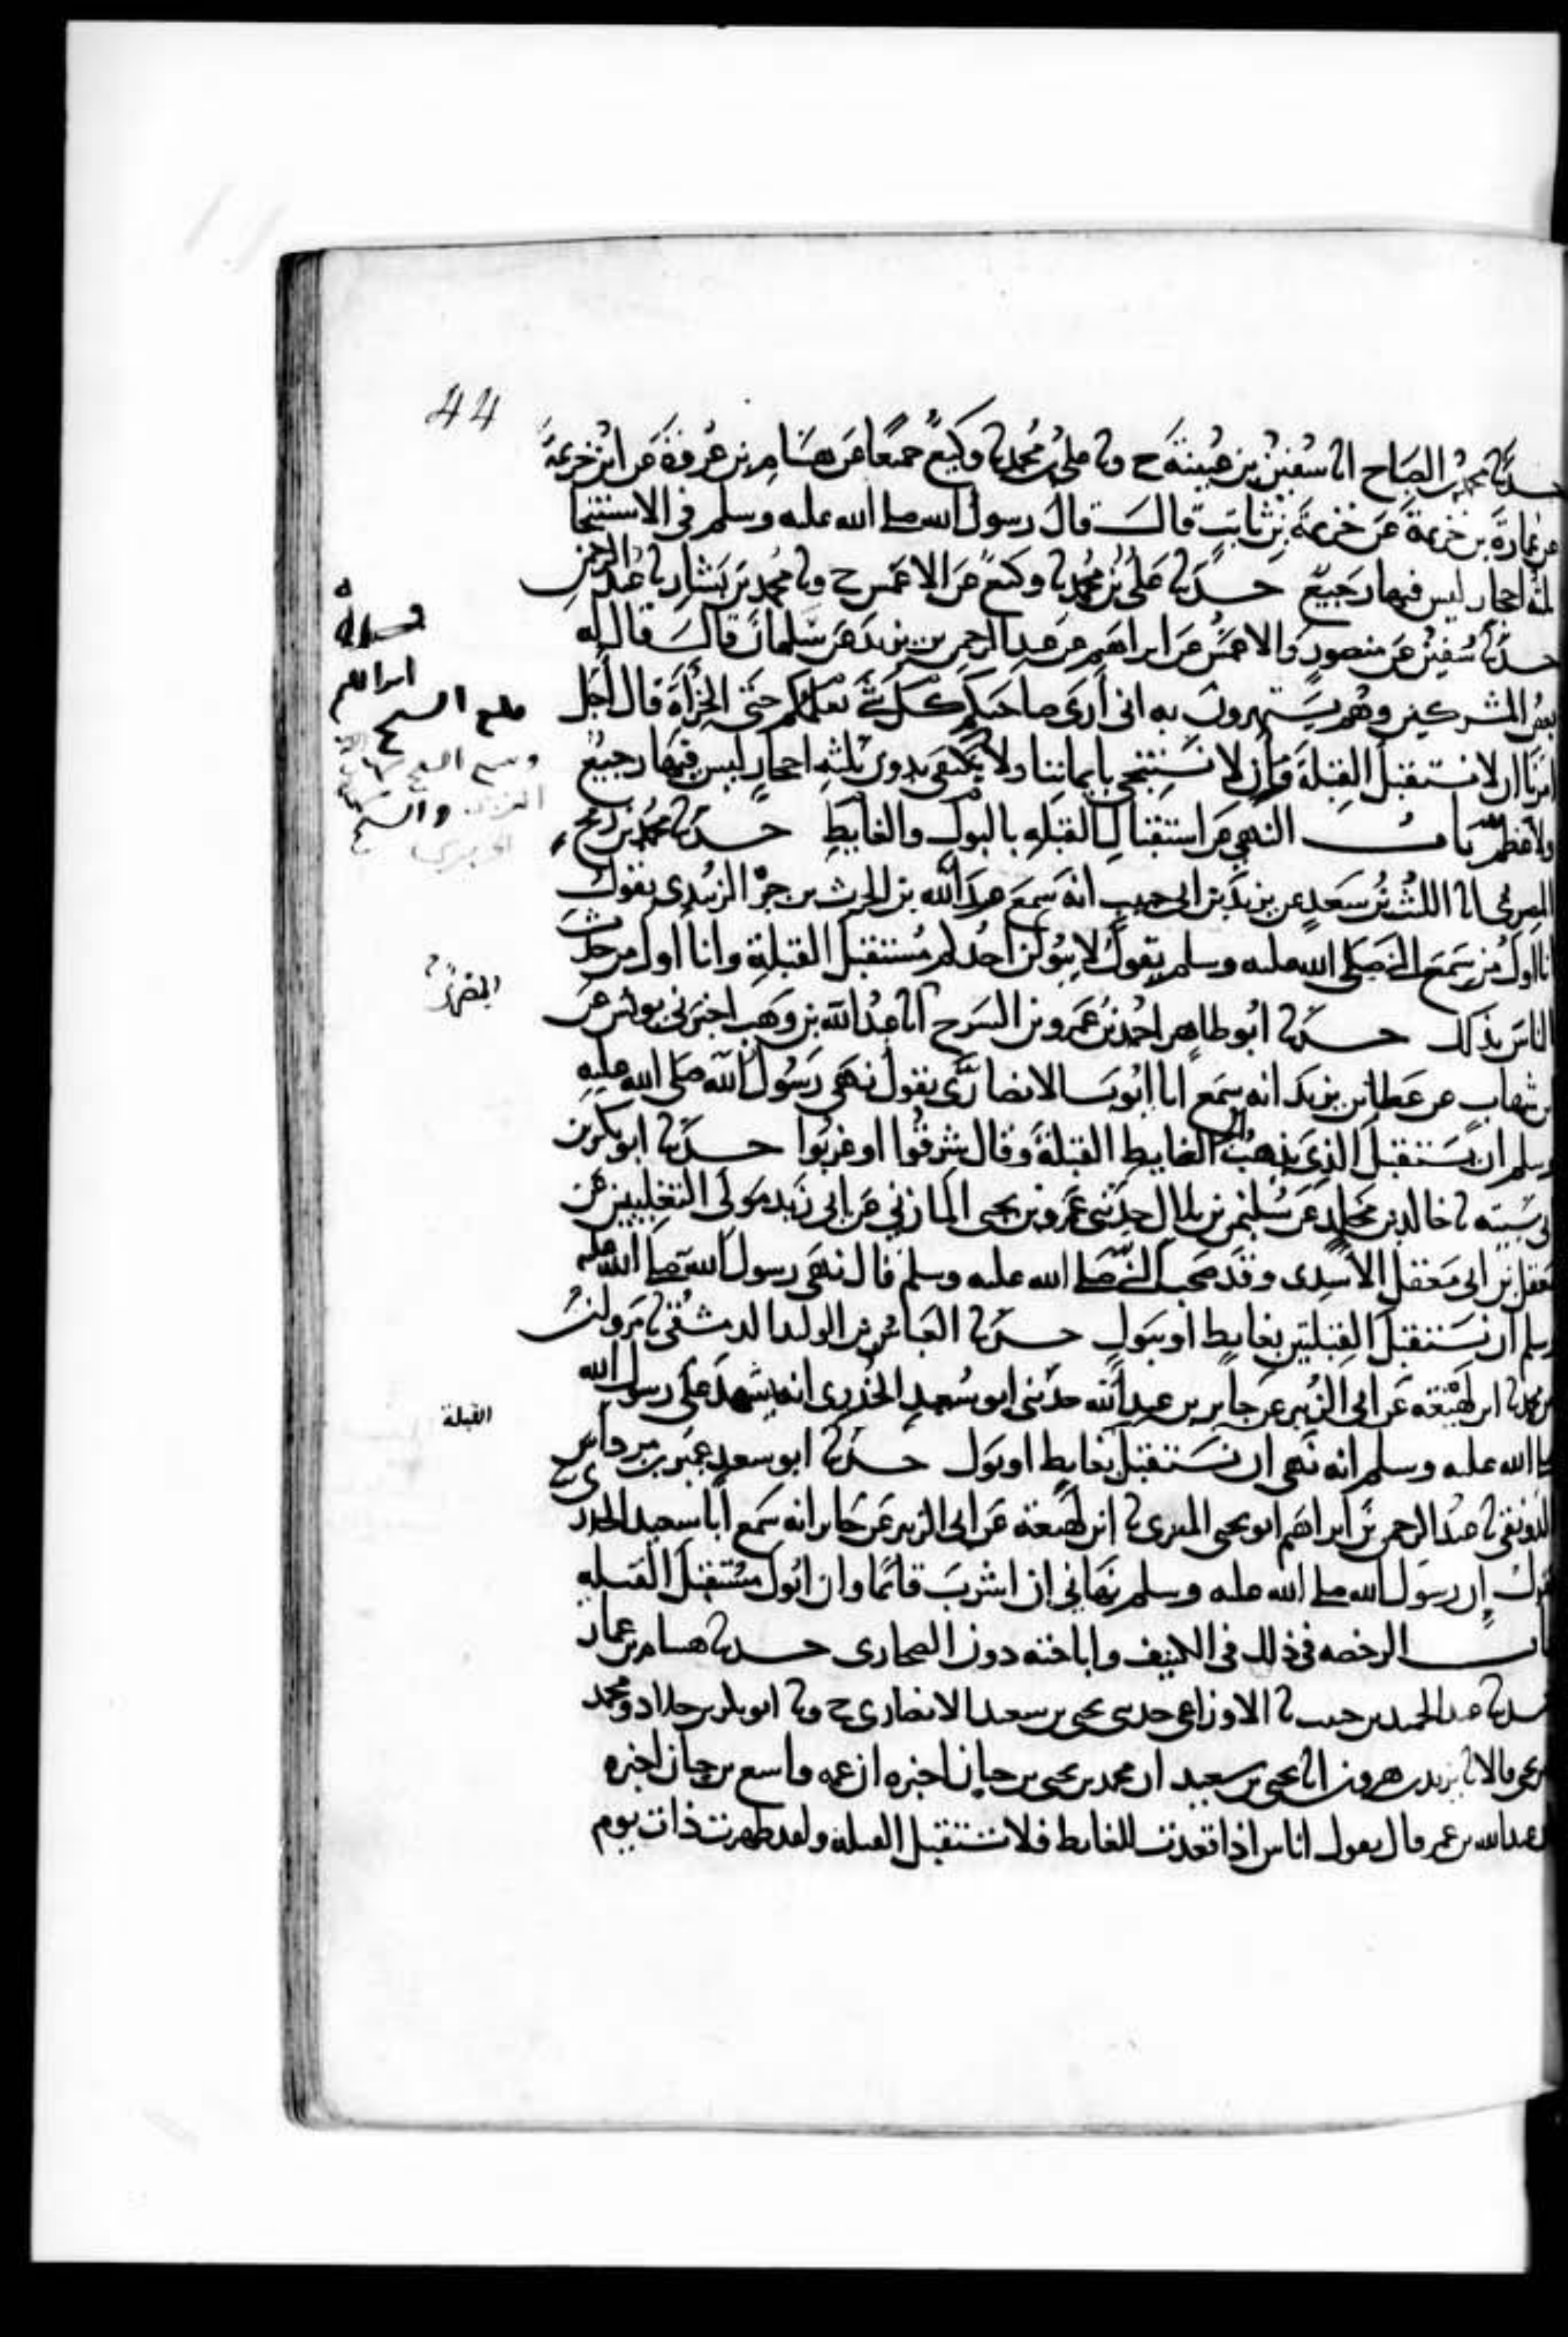 44
حدثنا محمد بن الصباح انا سفين بن عيينة ح ونا على بن محمد نا وكيع جميعا عن هشام بن عروة عن ابن خزيمة
عن عمارة بن خزيمة عن خزيمة بن ثابت قال قال رسول الله صلى الله عليه وسلم في الاستنجا
ثلثة احجار ليس فيها رجيع حدثنا على بن محمد نا وكيع عن الاعمش ح ونا محمد بن بشار نا عبد الرحمن
حدثنا سفين عن منصور والاعمش عن ابراهيم عن عبد الرحمن بن يزيد عن سلمان قال قال له
بعض المشركين وهم يستهزون به اني أرى صاحبكم كل شي يعلمكم حتى الخرأة قال أجل
امرنا ان لا نستقبل القبلة وأن لا نستنجي بايماننا ولا نكتفي بدون ثلثه احجار ليس فيها رجيع
ولا عظم باب النهي عن استقبال القبله بالبول والغايط حدثنا محمد بن رمح
المصري انا الليث بن سعد عن يزيد بن ابي حبيب انه سمع عبد الله بن الحرث بن جزء الزبيدي يقول
انا اول من سمع النبي صلى الله عليه وسلم يقول لا يبولن احدكم مستقبل القبلة وانا أول من حدث
الناس بذلك حدثنا ابو طاهر احمد بن عمرو بن السرح انا عبد الله بن وهب اخبرني يونس عن
بن شهاب عن عطا بن يزيد انه سمع ابا ايوب الانصاري يقول نهى رسول الله صلى الله عليه
وسلم ان يستقبل الذي يذهب الى الغايط القبلة وقال شرقوا او غربوا حدثنا ابو بكر بن
ابي شيبه نا خالد بن مخلد عن سليمن بن بلال حدثني عمرو بن يحيى المازني عن ابي زيد مولى الثعلبيين عن
معقل بن ابي معقل الأسدي وقد صحب النبي صلى الله عليه وسلم قال نهى رسول الله صلى الله عليه
وسلم أن نستقبل القبلتين بغايط أو ببول حدثنا العباس بن الوليد الدمشقي نا مرون بن
محمد نا ابن لهيعة عن ابي الزبير عن جابر بن عبد الله حدثني ابو سعيد الخدري انه شهد على رسول الله
صلى الله عليه وسلم انه نهى ان نستقبل بغايط او بول حدثنا ابو سعد عمير بن مرداس
الدونقي نا عبد الرحمن بن ابراهيم ابو يحيى البصري نا ابن لهيعة عن ابي الزبير عن جابر انه سمع أبا سعيد الخدري
يقول ان رسول الله صلى الله عليه وسلم نهاني ان اشرب قائما وان ابول مستقبل القبله
باب الرخصه في ذلك في الكنيف واباحته دون الصحاري حدثنا هشام بن عمار
حدثنا عبد الحميد بن حبيب نا الاوزاعي حدثني يحيى بن سعيد الانصاري ح ونا ابو بكر بن خلاد ومحمد
بن يحيى قالا نا يزيد بن هرون انا يحيى بن سعيد ان محمد بن يحيى بن حبان اخبره ان عمه واسع بن حبان اخبره
ان عبد الله بن عمر قال يقول اناس اذا قعدت للغايط فلا تستقبل القبلة ولقد ظهرت ذات يوم
القبلة